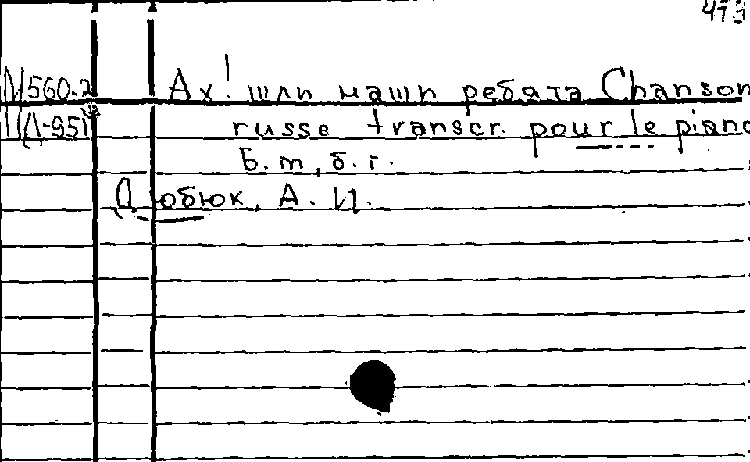 473
М560-2 Ах! шли наши ребята Chanson
(Д-95) russe transcr. pour le piano
Б.м., б.г.
Дюбюк, А. И.